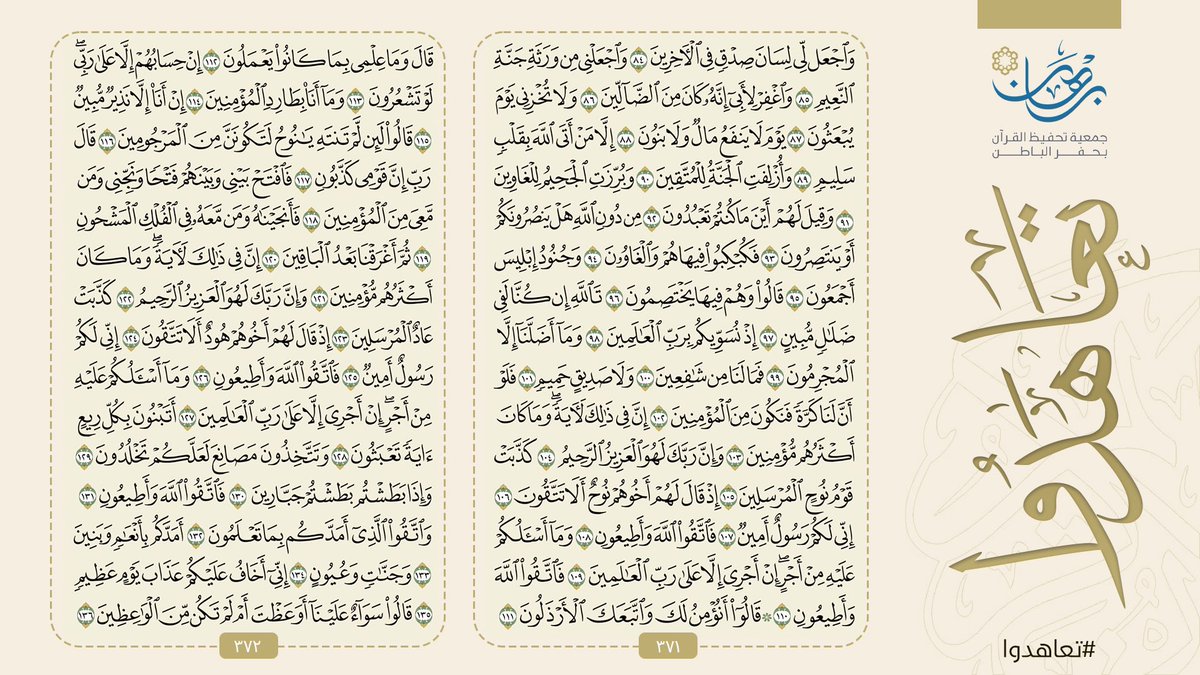 برهان
جمعية تحفيظ القرآن
بحفر الباطن
تعاهدوا
#تعاهدوا
وَٱجۡعَل لِّي لِسَانَ صِدۡقٖ فِي ٱلۡأٓخِرِينَ ٨٤ وَٱجۡعَلۡنِي مِن وَرَثَةِ جَنَّةِ
ٱلنَّعِيمِ ٨٥ وَٱغۡفِرۡ لِأَبِيٓ إِنَّهُۥ كَانَ مِنَ ٱلضَّآلِّينَ ٨٦ وَلَا تُخۡزِنِي يَوۡمَ
يُبۡعَثُونَ ٨٧ يَوۡمَ لَا يَنفَعُ مَالٞ وَلَا بَنُونَ ٨٨ إِلَّا مَنۡ أَتَى ٱللَّهَ بِقَلۡبٖ
سَلِيمٖ ٨٩ وَأُزۡلِفَتِ ٱلۡجَنَّةُ لِلۡمُتَّقِينَ ٩٠ وَبُرِّزَتِ ٱلۡجَحِيمُ لِلۡغَاوِينَ
٩١ وَقِيلَ لَهُمۡ أَيۡنَ مَا كُنتُمۡ تَعۡبُدُونَ ٩٢ مِن دُونِ ٱللَّهِ هَلۡ يَنصُرُونَكُمۡ
أَوۡ يَنتَصِرُونَ ٩٣ فَكُبۡكِبُواْ فِيهَا هُمۡ وَٱلۡغَاوُۥنَ ٩٤ وَجُنُودُ إِبۡلِيسَ
أَجۡمَعُونَ ٩٥ قَالُواْ وَهُمۡ فِيهَا يَخۡتَصِمُونَ ٩٦ تَٱللَّهِ إِن كُنَّا لَفِي
ضَلَٰلٖ مُّبِينٍ ٩٧ إِذۡ نُسَوِّيكُم بِرَبِّ ٱلۡعَٰلَمِينَ ٩٨ وَمَآ أَضَلَّنَآ إِلَّا
ٱلۡمُجۡرِمُونَ ٩٩ فَمَا لَنَا مِن شَٰفِعِينَ ١٠٠ وَلَا صَدِيقٍ حَمِيمٖ ١٠١ فَلَوۡ
أَنَّ لَنَا كَرَّةٗ فَنَكُونَ مِنَ ٱلۡمُؤۡمِنِينَ ١٠٢ إِنَّ فِي ذَٰلِكَ لَأٓيَةٗۖ وَمَا كَانَ
أَكۡثَرُهُم مُّؤۡمِنِينَ ١٠٣ وَإِنَّ رَبَّكَ لَهُوَ ٱلۡعَزِيزُ ٱلرَّحِيمُ ١٠٤ كَذَّبَتۡ
قَوۡمُ نُوحٍ ٱلۡمُرۡسَلِينَ ١٠٥ إِذۡ قَالَ لَهُمۡ أَخُوهُمۡ نُوحٌ أَلَا تَتَّقُونَ ١٠٦
إِنِّي لَكُمۡ رَسُولٌ أَمِينٞ ١٠٧ فَٱتَّقُواْ ٱللَّهَ وَأَطِيعُونِ ١٠٨ وَمَآ أَسۡـَٔلُكُمۡ
عَلَيۡهِ مِنۡ أَجۡرٍۖ إِنۡ أَجۡرِيَ إِلَّا عَلَىٰ رَبِّ ٱلۡعَٰلَمِينَ ١٠٩ فَٱتَّقُواْ ٱللَّهَ
وَأَطِيعُونِ ١١٠ ۞ قَالُوٓاْ أَنُؤۡمِنُ لَكَ وَٱتَّبَعَكَ ٱلۡأَرۡذَلُونَ ١١١
٣٧١
قَالَ وَمَا عِلۡمِي بِمَا كَانُواْ يَعۡمَلُونَ ١١٢ إِنۡ حِسَابُهُمۡ إِلَّا عَلَىٰ رَبِّيۖ
لَوۡ تَشۡعُرُونَ ١١٣ وَمَآ أَنَا۠ بِطَارِدِ ٱلۡمُؤۡمِنِينَ ١١٤ إِنۡ أَنَا۠ إِلَّا نَذِيرٞ مُّبِينٞ
١١٥ قَالُواْ لَئِن لَّمۡ تَنتَهِ يَٰنُوحُ لَتَكُونَنَّ مِنَ ٱلۡمَرۡجُومِينَ ١١٦ قَالَ
رَبِّ إِنَّ قَوۡمِي كَذَّبُونِ ١١٧ فَٱفۡتَحۡ بَيۡنِي وَبَيۡنَهُمۡ فَتۡحٗا وَنَجِّنِي وَمَن
مَّعِيَ مِنَ ٱلۡمُؤۡمِنِينَ ١١٨ فَأَنجَيۡنَٰهُ وَمَن مَّعَهُۥ فِي ٱلۡفُلۡكِ ٱلۡمَشۡحُونِ
١١٩ ثُمَّ أَغۡرَقۡنَا بَعۡدُ ٱلۡبَاقِينَ ١٢٠ إِنَّ فِي ذَٰلِكَ لَأٓيَةٗۖ وَمَا كَانَ
أَكۡثَرُهُم مُّؤۡمِنِينَ ١٢١ وَإِنَّ رَبَّكَ لَهُوَ ٱلۡعَزِيزُ ٱلرَّحِيمُ ١٢٢ كَذَّبَتۡ
عَادٌ ٱلۡمُرۡسَلِينَ ١٢٣ إِذۡ قَالَ لَهُمۡ أَخُوهُمۡ هُودٌ أَلَا تَتَّقُونَ ١٢٤ إِنِّي لَكُمۡ
رَسُولٌ أَمِينٞ ١٢٥ فَٱتَّقُواْ ٱللَّهَ وَأَطِيعُونِ ١٢٦ وَمَآ أَسۡـَٔلُكُمۡ عَلَيۡهِ
مِنۡ أَجۡرٍۖ إِنۡ أَجۡرِيَ إِلَّا عَلَىٰ رَبِّ ٱلۡعَٰلَمِينَ ١٢٧ أَتَبۡنُونَ بِكُلِّ رِيعٍ
ءَايَةٗ تَعۡبَثُونَ ١٢٨ وَتَتَّخِذُونَ مَصَانِعَ لَعَلَّكُمۡ تَخۡلُدُونَ ١٢٩
وَإِذَا بَطَشۡتُم بَطَشۡتُمۡ جَبَّارِينَ ١٣٠ فَٱتَّقُواْ ٱللَّهَ وَأَطِيعُونِ ١٣١
وَٱتَّقُواْ ٱلَّذِيٓ أَمَدَّكُم بِمَا تَعۡلَمُونَ ١٣٢ أَمَدَّكُم بِأَنۡعَٰمٖ وَبَنِينَ
١٣٣ وَجَنَّٰتٖ وَعُيُونٍ ١٣٤ إِنِّيٓ أَخَافُ عَلَيۡكُمۡ عَذَابَ يَوۡمٍ عَظِيمٖ
١٣٥ قَالُواْ سَوَآءٌ عَلَيۡنَآ أَوَعَظۡتَ أَمۡ لَمۡ تَكُن مِّنَ ٱلۡوَٰعِظِينَ ١٣٦
٣٧٢